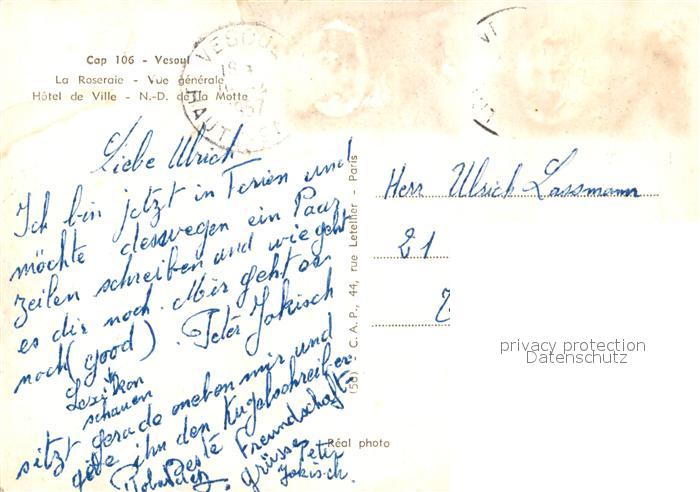 Cap 106 - Vesoul
La Roseraie - Vue générale
Hôtel de Ville - N.-D. de la Motte
VESOUL
HAUTE
Liebe Ulrich
Ich bin jetzt in Ferien und
möchte desswegen ein Paar
zeilen schreiben und wie geht
es dir noch. Mir geht es
noch (good). Peter Jokisch
Lexikon
schauen
sitzt gerade neben mir und
gebe ihn den Kugelschreiber
Beste Freundschaft-
grüsse
Peter
Jokisch.
(56) C.A.P., 44, rue Letellier - Paris
Réal photo
Herr Ulrich Lassmann
21
privacy protection
Datenschutz